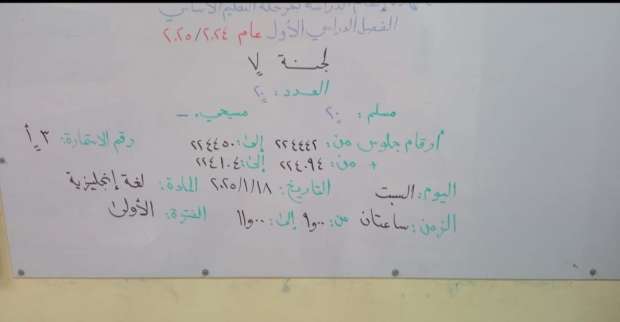 إتمام الدراسة بمرحلة التعليم الأساسي
الفصل الدراسي الأول عام ٢٠٢٥/٢٠٢٤
لجنة ٧
العدد: ٢٠
مسلم: ٢٠ مسيحي: -
أرقام جلوس من: ٢٢٤٤٤٢ إلى: ٢٢٤٤٥٠ رقم الاستمارة: ٣ أ
+ من: ٢٢٤٠٩٤ إلى: ٢٢٤١٠٤
اليوم: السبت التاريخ: ٢٠٢٥/١/١٨ المادة: لغة إنجليزية
الزمن: ساعتان من: ٩٫٠٠ إلى: ١١٫٠٠ الفترة: الأولى